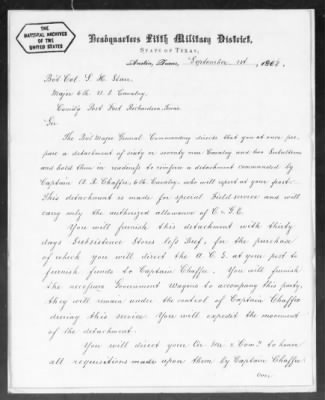 THE
NATIONAL ARCHIVES
OF THE
UNITED STATES
Headquarters Fifth Military District,
STATE OF TEXAS,
Austin, Texas, September 1st, 1868
Bvt Col. S. H.
Major 6th U. S. Cavalry,
Comd'g Post Fort Richardson, Texas
Sir
The Bvt Major General Commanding directs that you at once pre-
pare a detachment of sixty or seventy men Cavalry and two
and hold them in readiness to reinforce a detachment commanded by
Captain A. R. Chaffee, 6th Cavalry, who will report at your post.
This detachment is made for special Field service and will
carry only the authorized allowance of C & G. E.
You will furnish this detachment with thirty
days Subsistence Stores less Beef, for the purchase
of which you will direct the A. C. S. at your post to
furnish funds to Captain Chaffee. You will furnish
the necessary Government Wagons to accompany this party,
they will remain under the control of Captain Chaffee
during this service. You will expedite the movement
of the detachment.
You will direct your Qr. Mr. & Com'y to honor
all requisitions made upon them by Captain Chaffee